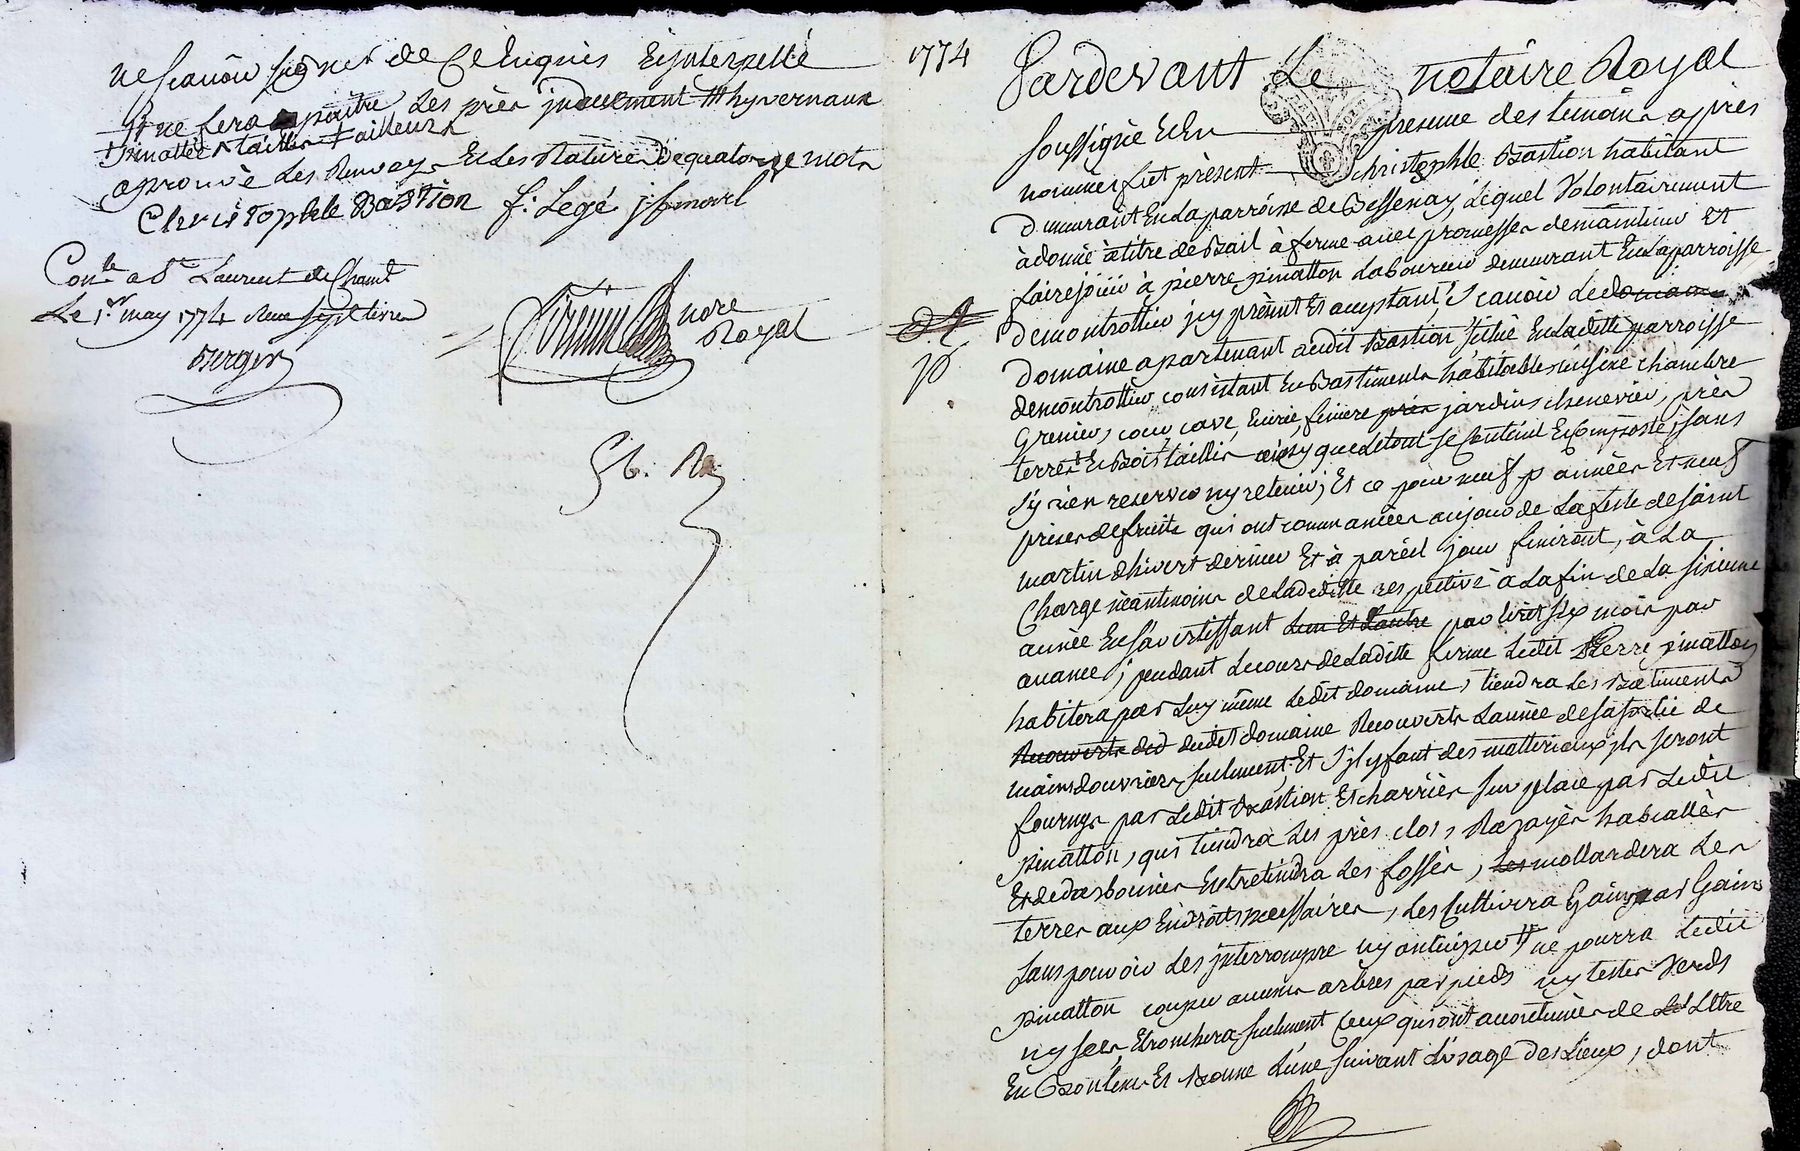 ne scavoir signer de ce Enquis Et interpellé
# ne fera paitre Les près # hyvernaux
+ pinatton + tailler + ailleurs
aprouvé Les Renvoys Et Les Rature De quatorze mots
Christophle Bastion f: Legé
Con.le a St Laurent de Chamt
Le 1.er may 1774 Reçu sept livres
Berger
nore
Royal
1774
Pardevant Le notaire Royal
soussigné Et En presence des temoins après
nommés fut présent Christophle Bastion habitant
Demeurant En La parroisse de Bessenay, Lequel Volontairement
à donné à titre de Bail à ferme avec promesses de maintenir Et
faire jouir à pierre pinatton Laboureur demeurant En La parroisse
de montrottier jcy présent Et acceptant, Scavoir Le domaine
Domaine apartenant audit Bastion situé En Laditte parroisse
de montrottier consistant En Bastiments habitables cuisine chambre
Grenier, cour cave, Ecurie, feniere près jardins chenevier, près
terres Et Bois taillis ainsy que Le tout Se Contient Et Comporte, sans
s'y rien reserver ny retenir; Et ce pour neuf années Et neuf
prises de fruits qui ont commancées au jour de La feste de saint
martin d'hivert dernier Et à pareil jour finiront, à La
Charge néantmoins de La deditte respective à La fin de La sixieme
année En s'avertissant L'un Et L'autre par Ecrit six mois par
avance; pendant Le cours de Laditte ferme Ledit Pierre pinatton
habitera par Luy même Ledit domaine, tiendra Les Batiments
Recouverts dud dudit domaine Recouverts L'année de sa sortie de
mains d'ouvriers seulement, Et S'il y faut des matteriaux jls seront
fournys par Ledit Bastion Et charriés sur place par Ledit
Pinatton, qui tiendra Les près clos, Razayés
Et Entretindra Les fossés, Les mollardera Les
terres aux Endroits necessaires, Les Cultivera Gain par Gain
sans pouvoir Les jnterrompre ny anticiper # ne pourra Ledit
pinatton couper aucuns arbres par pieds ny testes Verds
ny secs, Etronchera seulement Ceux qui ont accoutumés de L'Etre
En Bonne Lune suivant L'usage des Lieux, dont